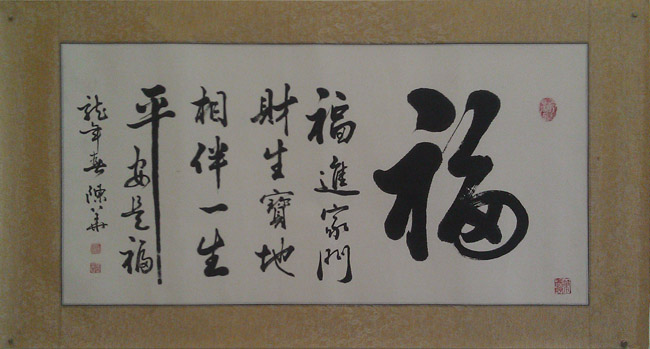 福
福進家門
財生寶地
相伴一生
平安是福
龍年春陳華